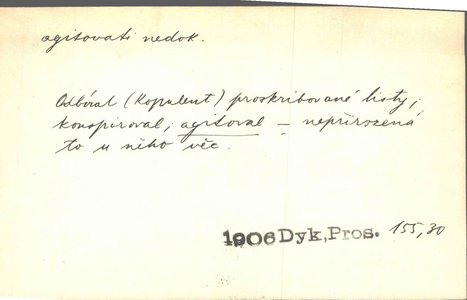 agitovati nedok.
Odbíral (Kopulent) proskribované listy;
konspiroval; agitoval – nepřirozená
to u něho věc.
1906 Dyk, Pros. 155,30